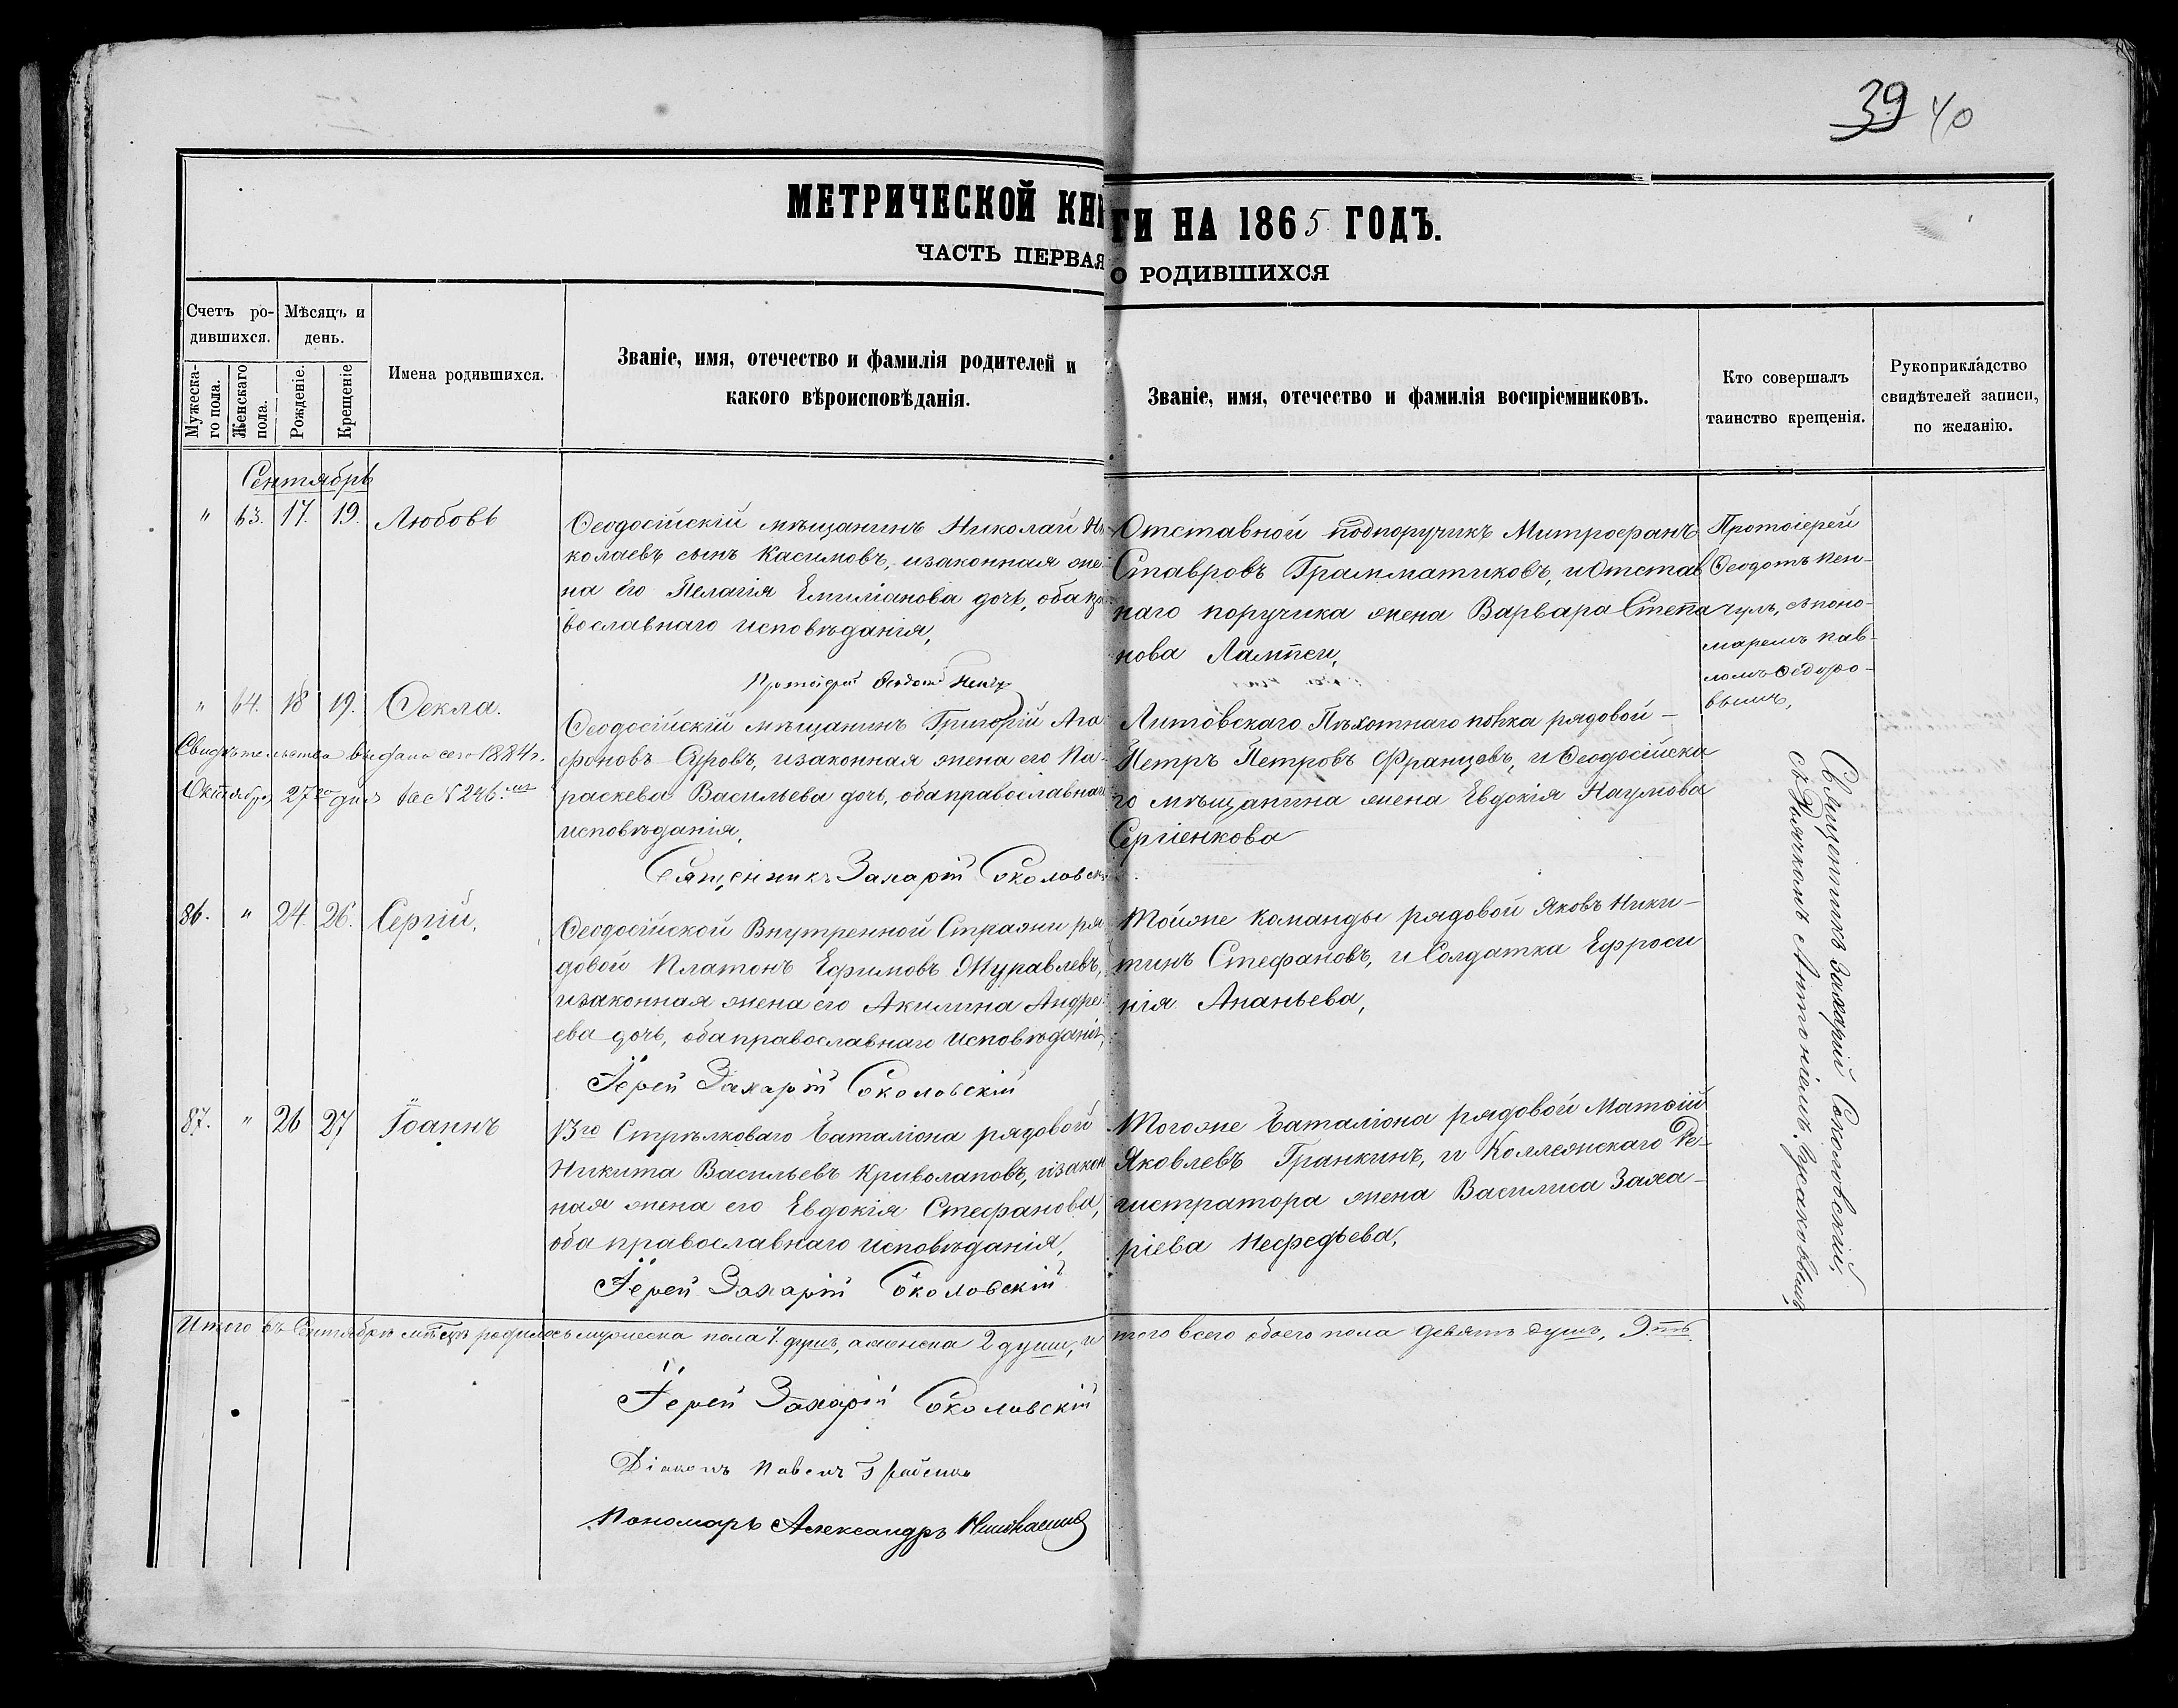 39 40
МЕТРИЧЕСКОЙ КНИГИ НА 1865 ГОДЪ.
ЧАСТЬ ПЕРВАЯ О РОДИВШИХСЯ
Счетъ ро-
дившихся.
Мужеска-
го пола.
Женскаго
пола.
Мѣсяцъ и
день.
Рожденіе.
Крещеніе
Имена родившихся.
Званіе, имя, отечество и фамилія родителей и
какого вѣроисповѣданія.
Званіе, имя, отечество и фамилія воспріемниковъ.
Кто совершалъ
таинство крещенія.
Рукоприкла́дство
свидѣтелей записи,
по желанію.
Сентябрь
" 63. 17. 19. Любовь
Ѳеодосійскій мѣщанинъ Николай Ни-
колаевъ сынъ Касимовъ, изаконная же-
на его Пелагія Емиліанова дочь, оба пра-
вославнаго исповѣданія,
Протоіерей Ѳеодотъ
Отставной подпоручикъ Митрофанъ
Ставровъ Грамматиковъ, и Отстав
наго поручика жена Варвара Степа
нова Лампси,
Протоіерей
Ѳеодотъ Пен-
чулъ, спono-
маремъ Пав-
ломъ Ѳедоро-
вымъ,
" 64. 18 19. Ѳекла.
Свидѣтельство выдано сего 1884 г.
Октября 27го дня за № 246.
Ѳеодосійскій мѣщанинъ Григорій Ага
фоновъ Суровъ, изаконная жена его Па-
раскева Васильева дочь, оба православнаго
исповѣданія,
Священникъ Захарій Соколовскій
Литовскаго Пѣхотнаго полка рядовой
Петръ Петровъ Францевъ, и Ѳеодосійска
го мѣщанина жена Евдокія Наумова
Сергіенкова
86. " 24. 26. Сергій,
Ѳеодосійской Внутренной Стражи ря
довой Платонъ Ефимовъ Журавлевъ,
изаконная жена его Акилина Андре
ева дочь, оба православнаго исповѣданія,
Іерей Захарій Соколовскій
Тойже команды рядовой Яковъ Ники-
тинъ Стефановъ, и Солдатка Ефроси
нія Ананьева,
Священникъ Захарій Соколовскій,
съ Дьячкомъ Антоніемъ
87. " 26 27 Іоаннъ
13го Стрѣлковаго баталіона рядовой
Никита Васильевъ Криволаповъ, изакон
ная жена его Евдокія Стефанова,
оба православнаго исповѣданія,
Іерей Захарій Соколовскій
Тогоже баталіона рядовой Матѳій
Яковлевъ Гранкинъ, и Коллежскаго Ре-
гистратора жена Василиса Заха-
ріева Нефедьева,
Итого въ Сентябрѣ мѣсяцѣ родилось мужеска пола 7. душъ, аженска 2 души, и того всего обоего пола девять душъ, 9.ть
Іерей Захарій Соколовскій
Діаконъ Павелъ
Пономарь Александръ